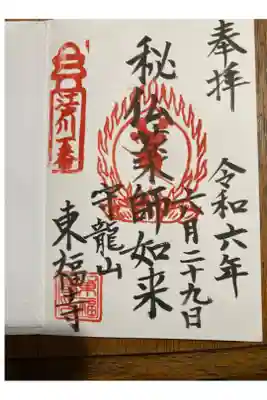 奉拝
令和六年
六月二十九日
秘仏薬師如来
守龍山
東福寺